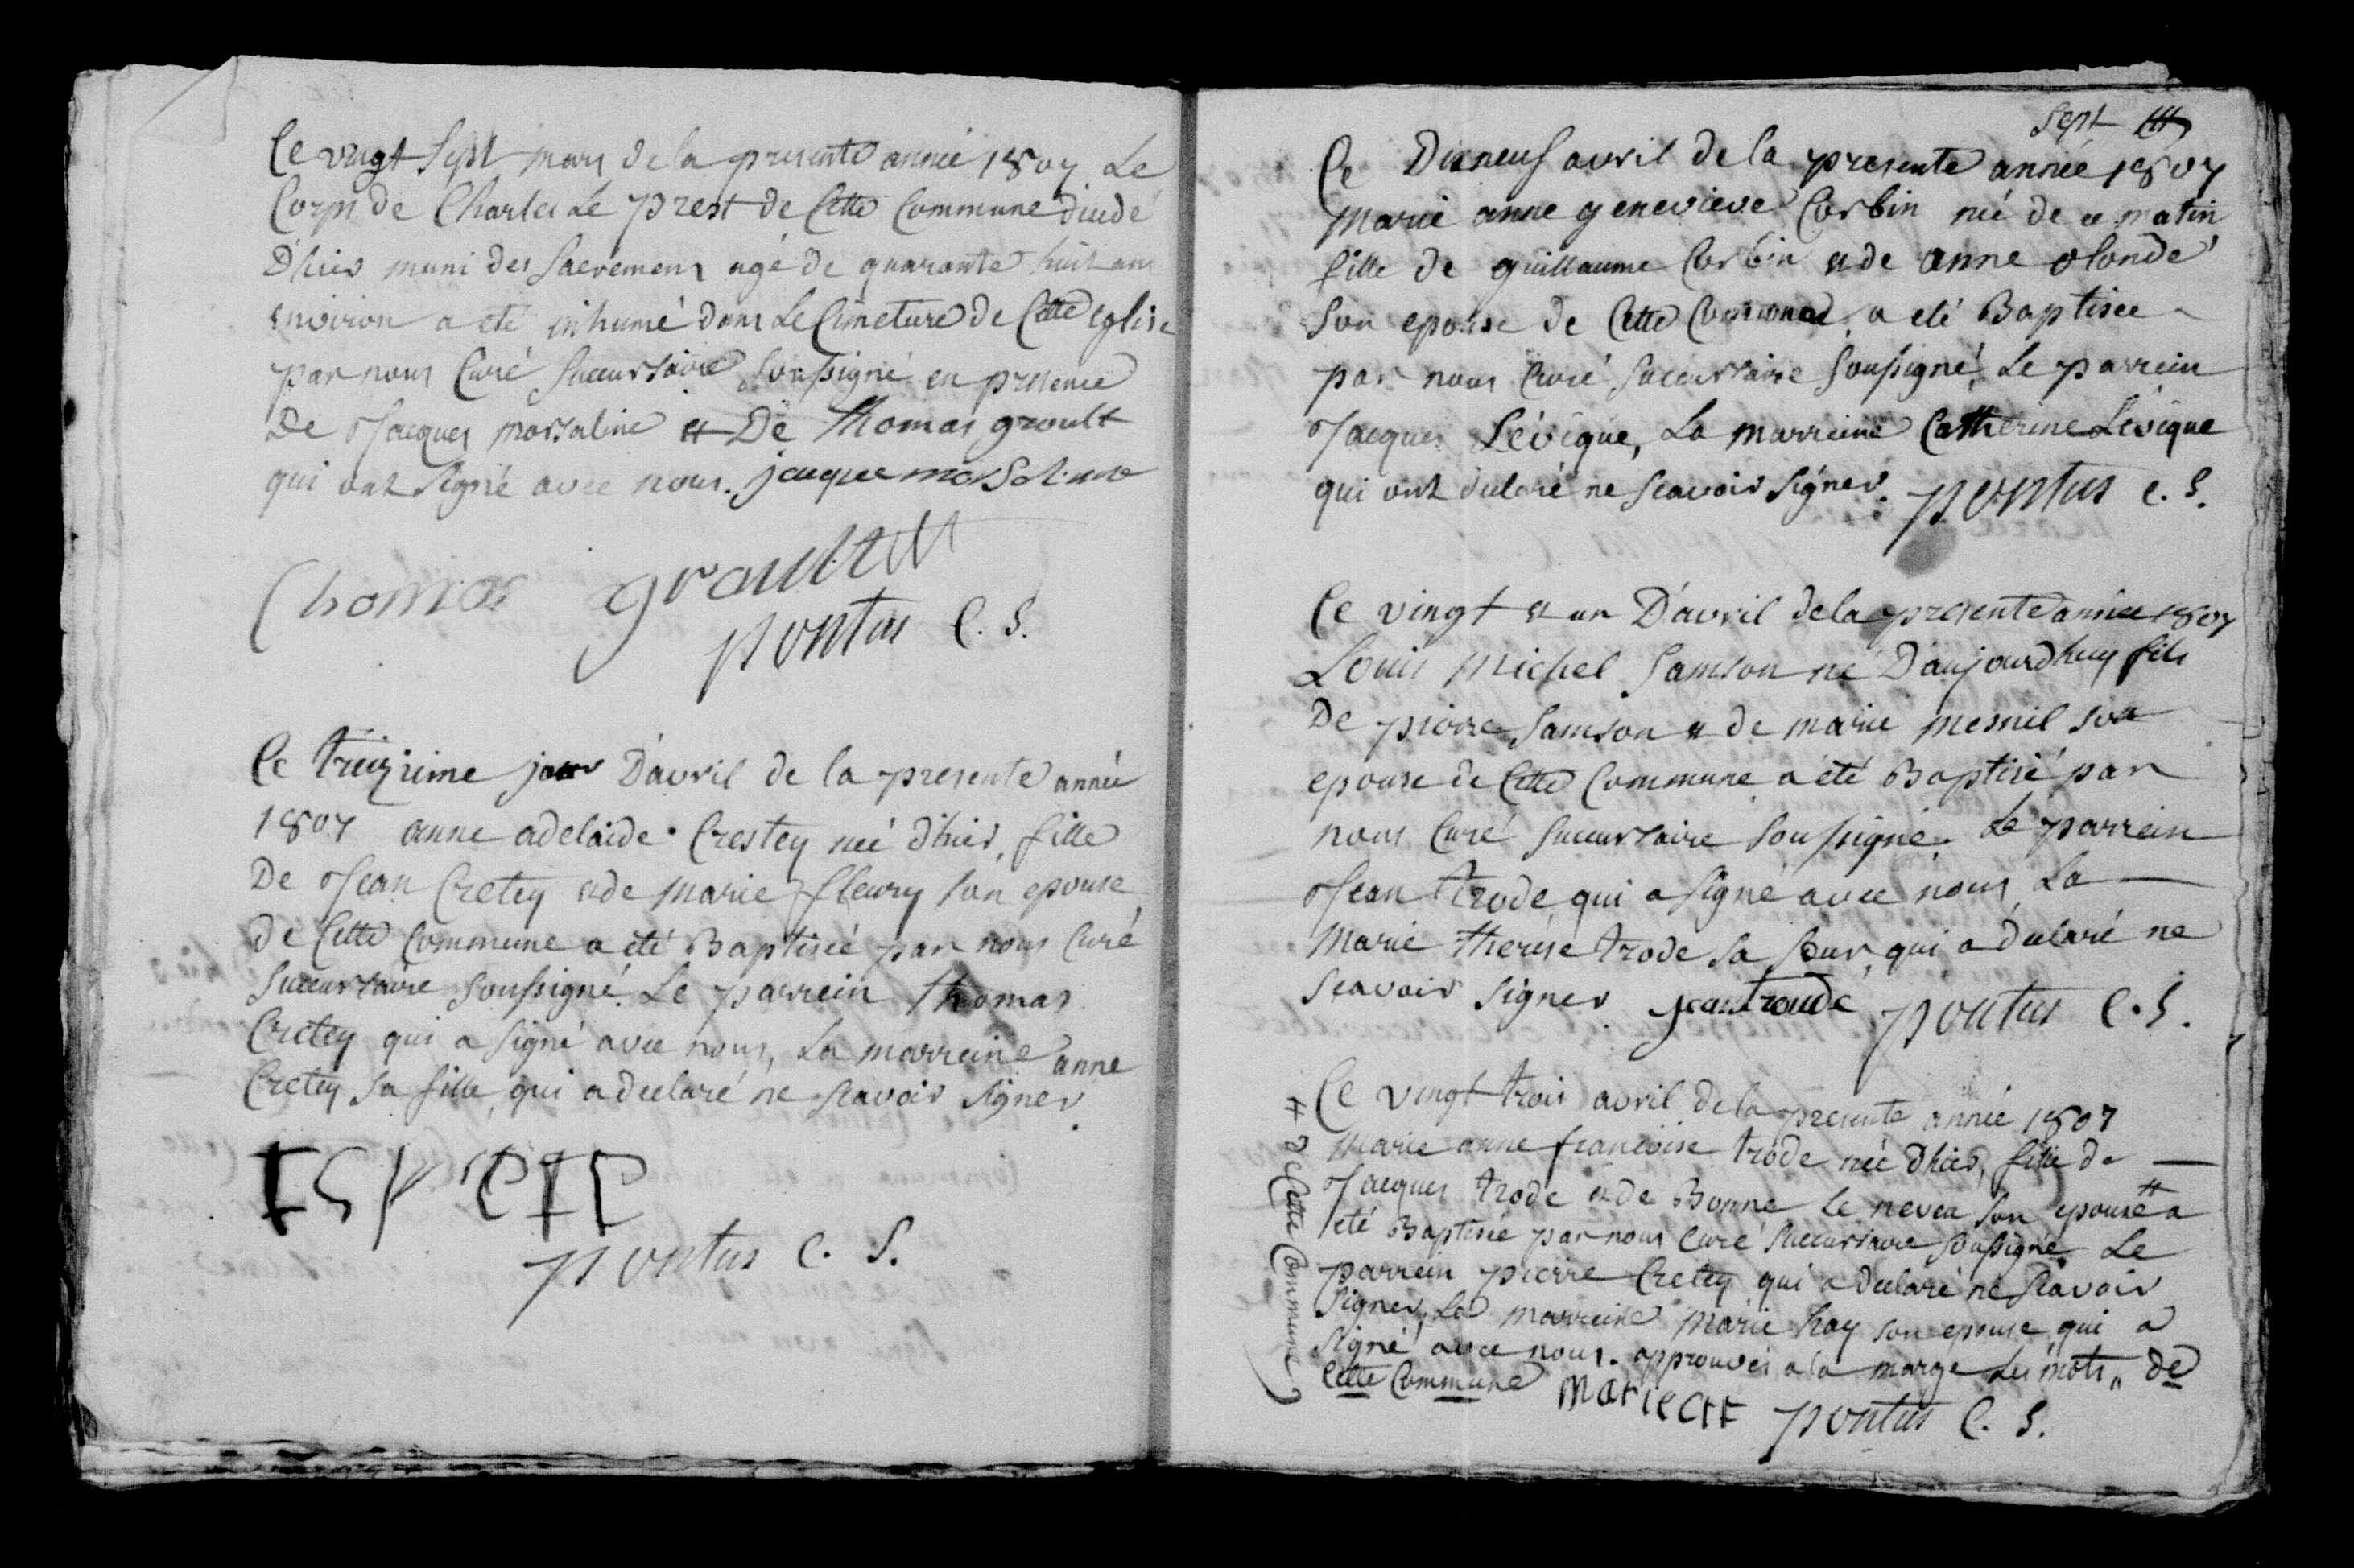 Ce vingt Sept mars de la presente année 1807 Le
Corps de Charles Le prest de Cette Commune diédé
D'hier muni des Sacremens agé de quarante huit ans
environ a eté inhumé dans Le Cimeture de Cette eglise
par nous Curé Succursaire Soussigné en presence
De Jacques Morsaline et De Thomas groult
qui ont Signé avec nous. jacque morsaline
Thomas groult
pontus C. S.
Ce treizieme jour D'avril de la presente année
1807 anne adelaide Crestey née d'hier, fille
De Jean Cretey et de Marie fleury son epouse
de Cette Commune a été Baptisée par nous Curé
Succursaire Soussigné. Le parrein Thomas
Cretey qui a Signé avec nous, La marreine anne
Cretey Sa fille, qui a declaré ne scavoir Signer.
pontus C. S.
Sept
Ce Dixneuf avril de la presente année 1807
Marie anne genevieve Corbin née de ce matin
fille de guillaume Corbin et de anne olonde
Son epouse de Cette Commune a eté Baptisée
par nous Curé Succursaire Soussigné, Le parrein
Jacques Lévêque, La marreine Catherine Lévêque
qui ont declaré ne Scavoir Signer. pontus C. S.
Ce vingt et un D'avril de la presente année 1807
Louis Michel Samson né D'aujourdhuy fils
De pierre Samson et de marie mesnil son
epouse de Cette Commune a été Baptisé par
nous Curé Succursaire Soussigné. Le parrein
Jean trode, qui a signé avec nous, La
Marie therese trode sa sœur, qui a declaré ne
Scavoir Signer jean troude pontus C. S.
Ce vingt trois avril de la presente année 1807
Marie anne francoise trode née d'hier, fille de
Jacques trode et de Bonne Le neveu son epouse # a
eté Baptisée par nous Curé Succursaire Soussigné Le
parrein pierre Cretey qui a declaré ne Scavoir
Signer, La marreine Marie hay son epouse qui a
Signé avec nous. approuvés a la marge Les mots „ de
Cette Commune Marie pontus C. S.
# de Cette Commune